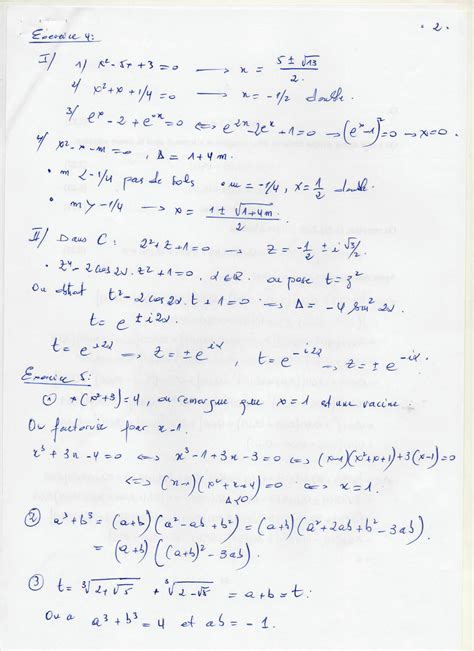 . 2 .
Exercice 4:
I/ 1) x² - 5x + 3 = 0 → x = (5 ± √13)/2.
2/ x² + x + 1/4 = 0 → x = -1/2 double.
3/ e^x - 2 + e^-x = 0 ⟺ e^2x - 2e^x + 1 = 0 → (e^x - 1)² = 0 → x = 0.
4/ x² - x - m = 0, Δ = 1 + 4m.
• m < -1/4 pas de sols • m = -1/4, x = 1/2 double.
• m > -1/4 → x = (1 ± √(1+4m))/2
II/ Dans C: z² + z + 1 = 0 → z = -1/2 ± i √3/2.
• z⁴ - 2cos2α. z² + 1 = 0, α ∈ ℝ. on pose t = z²
On obtient t² - 2cos2α. t + 1 = 0 ⟹ Δ = -4 sin² 2α.
t = e^±i2α.
t = e^i2α →, z = ± e^iα, t = e^-i2α →, z = ± e^-iα.
Exercice 5:
① x(x²+3) = 4, on remarque que x = 1 est une racine.
On factorise par x - 1.
x³ + 3x - 4 = 0 ⟺ x³ - 1 + 3x - 3 = 0 ⟺ (x-1)(x²+x+1) + 3(x-1) = 0
⟺ (x-1)(x²+x+4) = 0 ⟺ x = 1.
Δ<0
② a³ + b³ = (a+b)(a² - ab + b²) = (a+b)(a² + 2ab + b² - 3ab).
= (a+b)((a+b)² - 3ab).
③ t = ³√(2+√5) + ³√(2-√5) = a + b = t:
On a a³ + b³ = 4 et ab = -1.